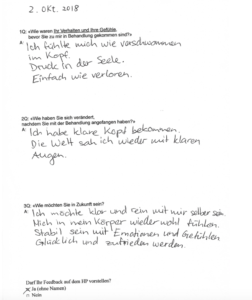 2. Okt. 2018
1Q: «Wie waren Ihr Verhalten und Ihre Gefühle,
bevor Sie zu mir in Behandlung gekommen sind?»
A: Ich fühlte mich wie verschwommen
im Kopf.
Druck in der Seele.
Einfach wie verloren.
2Q: «Wie haben Sie sich verändert,
nachdem Sie mit der Behandlung angefangen haben?»
A: Ich habe klare Kopf bekommen.
Die Welt sah ich wieder mit klaren
Augen.
3Q: «Wie möchten Sie in Zukunft sein?»
A: Ich möchte klar und rein mit mir selber sein.
Mich in mein Körper wieder wohl fühlen.
Stabil sein mit Emotionen und Gefühlen
Glücklich und zufrieden werden.
Darf Ihr Feedback auf dem HP vorstellen?
Ja (ohne Namen)
Nein